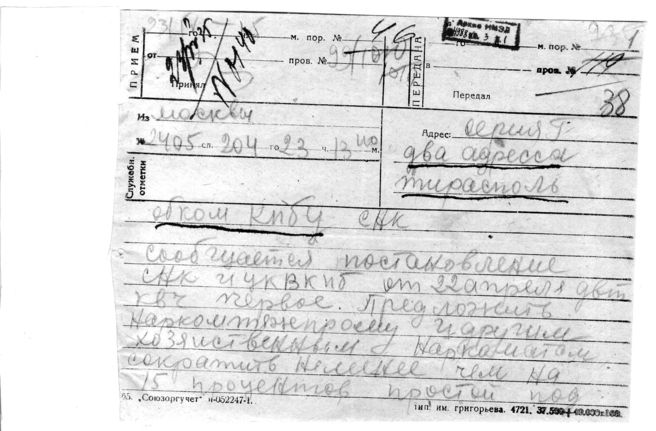 ПРИЕМ
го
м. пор. №
от
пров. №
Принял
ПЕРЕДАНА
Архив ИМЭЛ
го
м. пор. №
231
в
пров. №
Передал
38
Из Москвы
№ 2405 сл. 204 го 23 ч. 13 40 м.
Служебн. отметки
Адрес: серия Г
два адреса
тирасполь
обком КПбУ СНК
сообщается постановление
СНК и ЦК ВКПб от 22 апреля двт
квч первое. Предложить
Наркомтяжпрому и другим
хозяйственным наркоматам
сократить не менее чем на
15 процентов простой под
65. „Союзоргучет“ н-052247-1.
тип. им. григорьева. 4721.